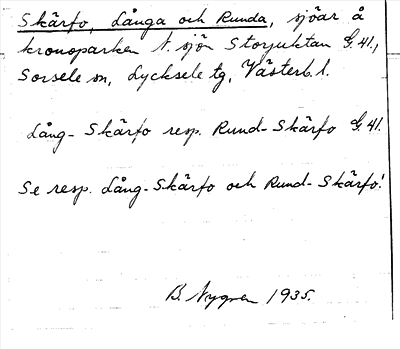 Skärfo, Långa och Runda, sjöar å
kronoparken t. sjön Storjuktan G. 41,
Sorsele sn, Lycksele tg, Västerb. l.
Lång-Skärfo resp. Rund-Skärfo G. 41.
Se resp. Lång-Skärfo och Rund-Skärfo!
B. Nygren 1935.